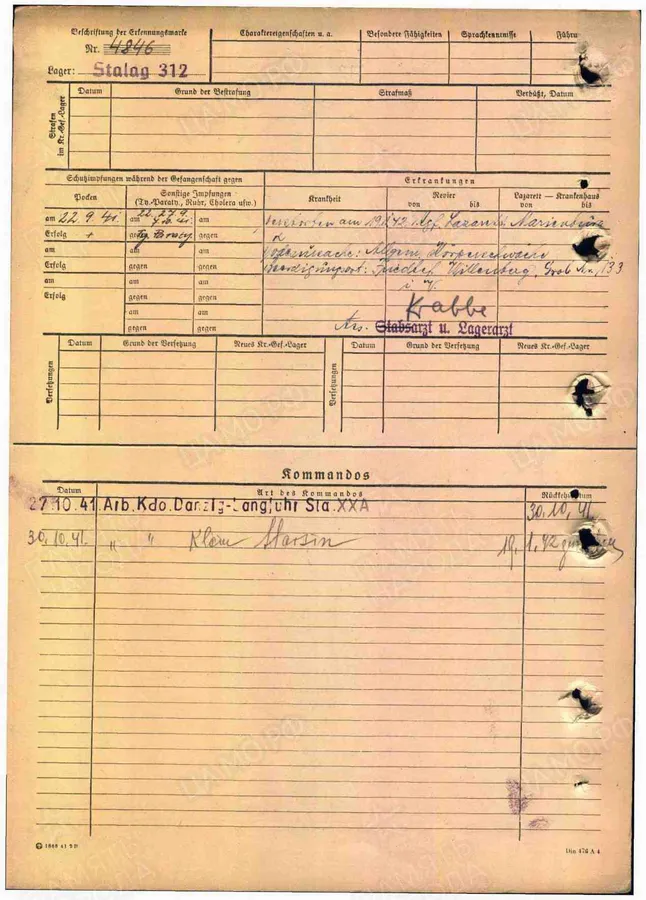 Beschriftung der Erkennungsmarke
Nr. 4846
Lager: Stalag 312
Charaktereigenschaften u. a.
Besondere Fähigkeiten
Sprachkenntnisse
Führu
Strafen im Kr.-Gef.-Lager
Datum
Grund der Bestrafung
Strafmaß
Verbüßt, Datum
Schutzimpfungen während der Gefangenschaft gegen
Erkrankungen
Pocken
Sonstige Impfungen
(Ty.-Paraty., Ruhr, Cholera usw.)
Krankheit
Revier
von bis
Lazarett — Krankenhaus
von bis
am 22.9.41. am 22. 27.9. am
Erfolg + gegen gegen
verstorben am 19.1.42, Kgf. Lazarett Marienburg
am am am
Todesursache: Allgem. Körperschwäche
Erfolg gegen gegen
Beerdigungsort: Friedhof Willenberg, Grab Nr. 133
am am am
Erfolg gegen gegen
am am
gegen gegen
Krabbe
Stabsarzt u. Lagerarzt
Versetzungen
Datum
Grund der Versetzung
Neues Kr.-Gef.-Lager
Versetzungen
Datum
Grund der Versetzung
Neues Kr.-Gef.-Lager
Kommandos
Datum
Art des Kommandos
27.10.41 Arb.Kdo.Danzig-Langfuhr Sta.XXA 30.10.41.
30.10.41. " " Klein 19.1.42
1868 41 2D
Din 476 A 4
ЦАМО.РФ
ПАМЯТЬ НАРОДА